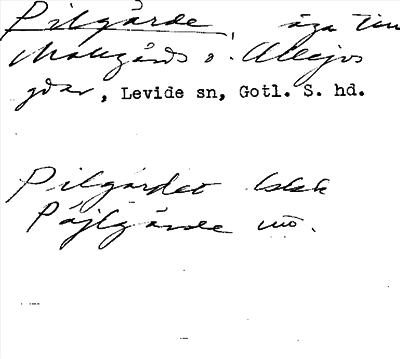 Pilgårde, äga till
Mallgårds o. Allejvs
gdar, Levide sn, Gotl. S. hd.
Pilgårdet
Päjlgårde